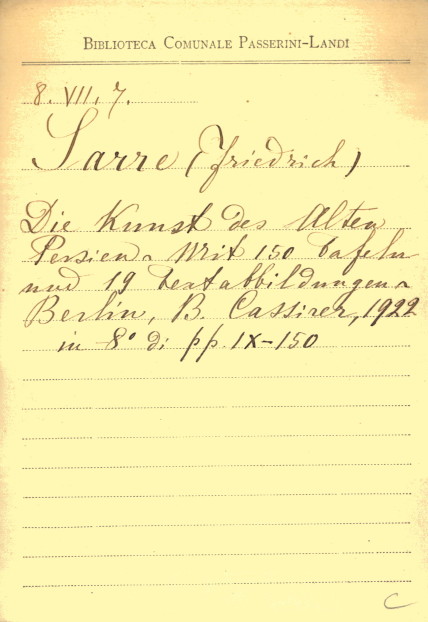 BIBLIOTECA COMUNALE PASSERINI-LANDI
8. VII. 7.
Sarre (Friedrich)
Die Kunst des Alten
Persien. Mit 150 Tafeln
und 19 Textabbildungen.
Berlin, B. Cassirer, 1922
in 8° di pp. IX-150
C